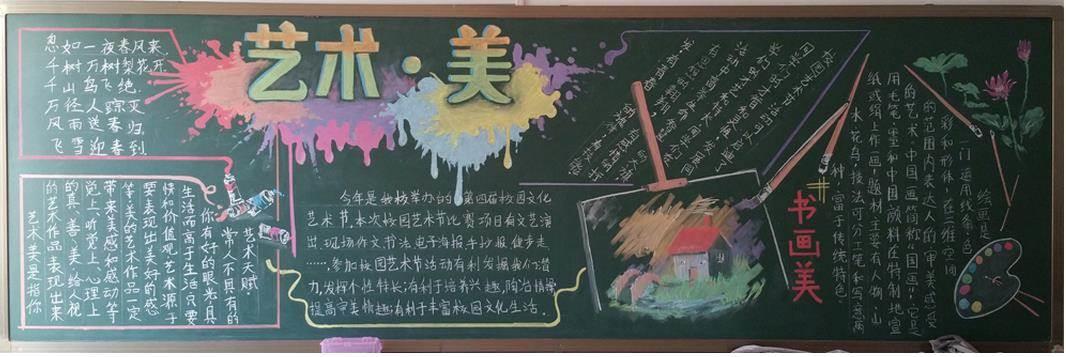 艺术·美
忽如一夜春风来,
千树万树梨花开
千山鸟飞绝,
万径人踪灭
风雨送春归,
飞雪迎春到
艺术天赋:
常人不具有的
你有好的眼光具
生活而高于生活,只要
情和价值观艺术源于
要表现出美好的感
等美的艺术作品一定
带来美感和感动等
觉上、听觉上、心理上
的真、善、美,给人视
的艺术作品表现出来
艺术美是指你
今年是我校举办的第四届校园文化
艺术节,本次校园艺术节比赛项目有文艺演
出、现场作文书法、电子海报手抄报、健步走
……,参加校园艺术节活动有利发掘我们潜
力,发挥个性特长;有利于培养兴趣,陶冶情操
提高审美情趣;有利于丰富校园文化生活。
书画美
绘画是
一门运用线条、色
彩和形体,在二维空间
的范围内表达人的审美感受
的艺术。中国画简称"国画",它是
用毛笔、墨和中国颜料在特制地宣
纸或绢上作画,题材主要有人物、山
水、花鸟,技法可分工笔和写意两
种,富于传统特色.